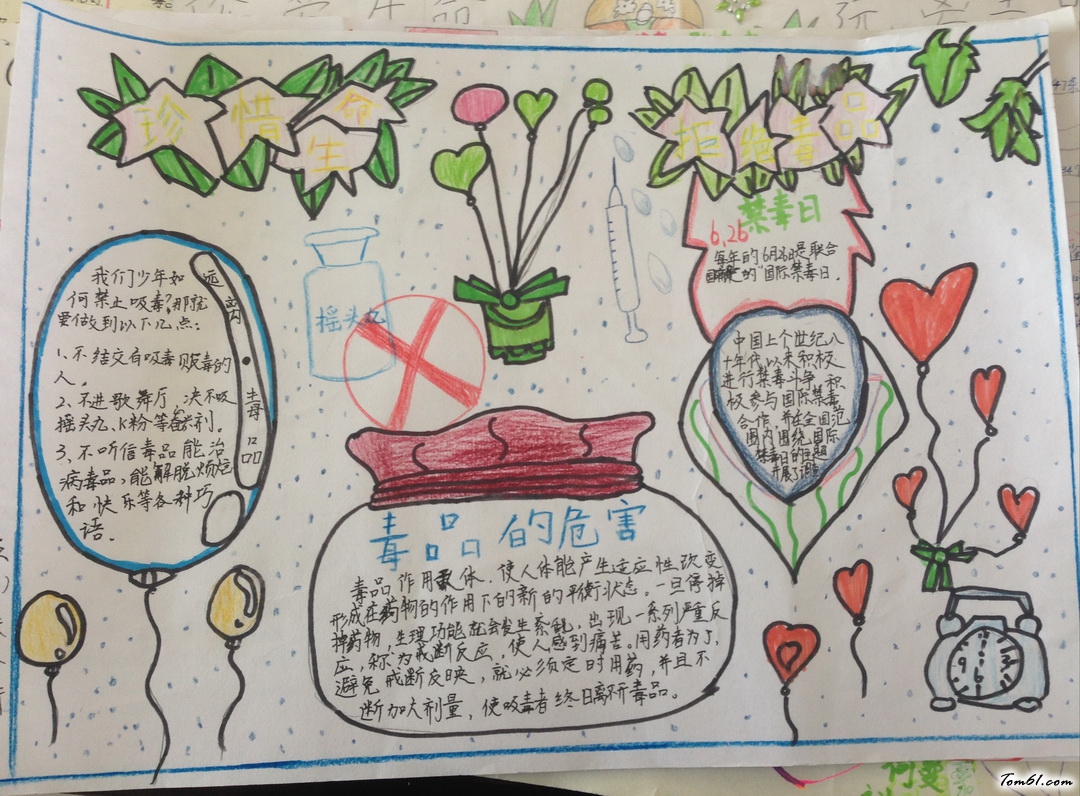 珍惜生命
拒绝毒品
禁毒日
6.26
每年的6月26日是联合
国确定的"国际禁毒日.
我们少年如
何禁止吸毒,那就
要做到以下几点:
1、不结交有吸毒贩毒的
人。
2、不进歌舞厅,决不吸
摇头丸、K粉等
剂。
3、不听信毒品能治
病毒品,能解脱烦恼
和快乐等各种巧
语.
远离·毒品
摇头丸
中国上个世纪八
十年代以来积极
进行禁毒斗争,积
极参与国际禁毒
合作,并在全国范
围内围绕国际
禁毒日的主题
开展了
毒品的危害
毒品作用
体,使人体能产生适应性改变
形成在药物的作用下的新的平衡状态。一旦停掉
药物,生理功能就会发生紊乱,出现一系列严重反
应,称为戒断反应,使人感到痛苦。用药者为了
避免戒断反映,就必须定时用药,并且不
断加大剂量,使吸毒者终日离不开毒品。
12
3
6
9
Tom61.com